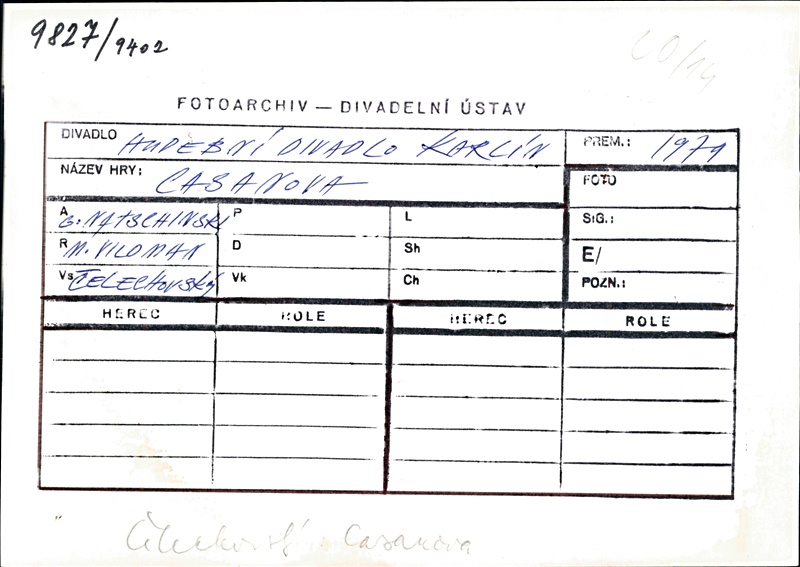 9827/9402
60/14
FOTOARCHIV — DIVADELNÍ ÚSTAV
DIVADLO HUDEBNÍ DIVADLO KARLÍN PREM.: 1979
NÁZEV HRY: CASANOVA FOTO
A G. NATSCHINSKI P L SIG.:
R M. VILDMAN D Sh E/
Vs ČELECHOVSKÝ Vk Ch POZN.:
HEREC ROLE HEREC ROLE
Čelechovský Casanova